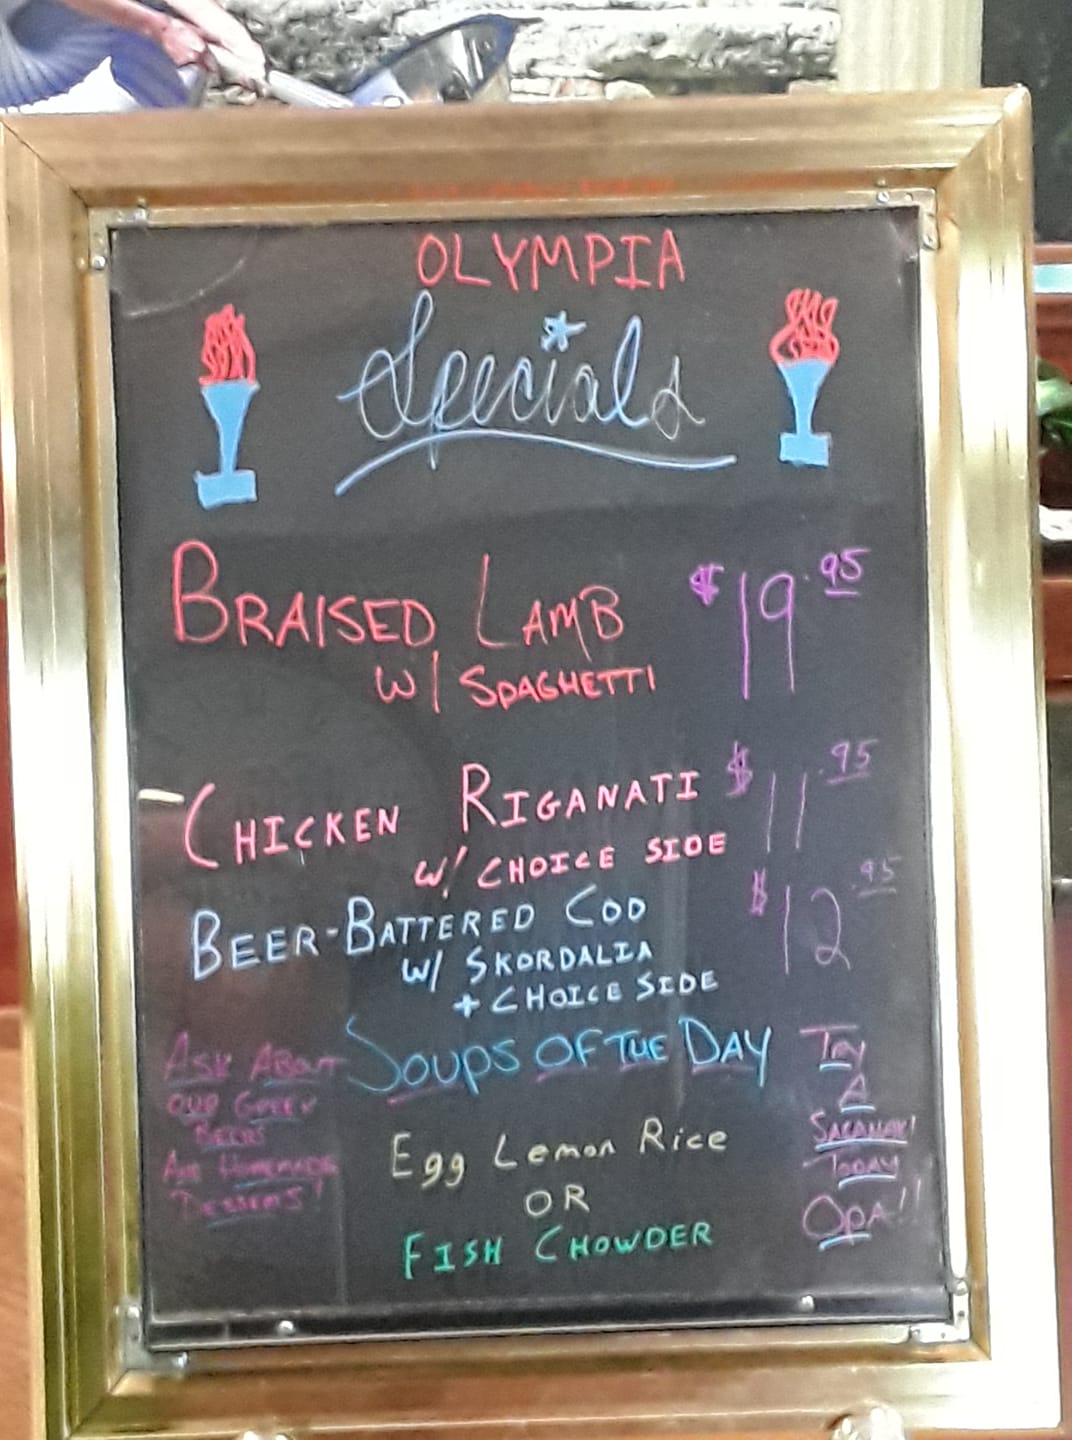 OLYMPIA
Specials
BRAISED LAMB $19.95
W/ SPAGHETTI
CHICKEN RIGANATI $11.95
W/ CHOICE SIDE
BEER-BATTERED COD $12.95
W/ SKORDALIA
+ CHOICE SIDE
SOUPS OF THE DAY
Egg Lemon Rice
OR
FISH CHOWDER
ASK ABOUT
OUR GREEK
BEERS
AND HOMEMADE
DESSERTS!
TRY
A
SAGANAKI
TODAY
OPA!!